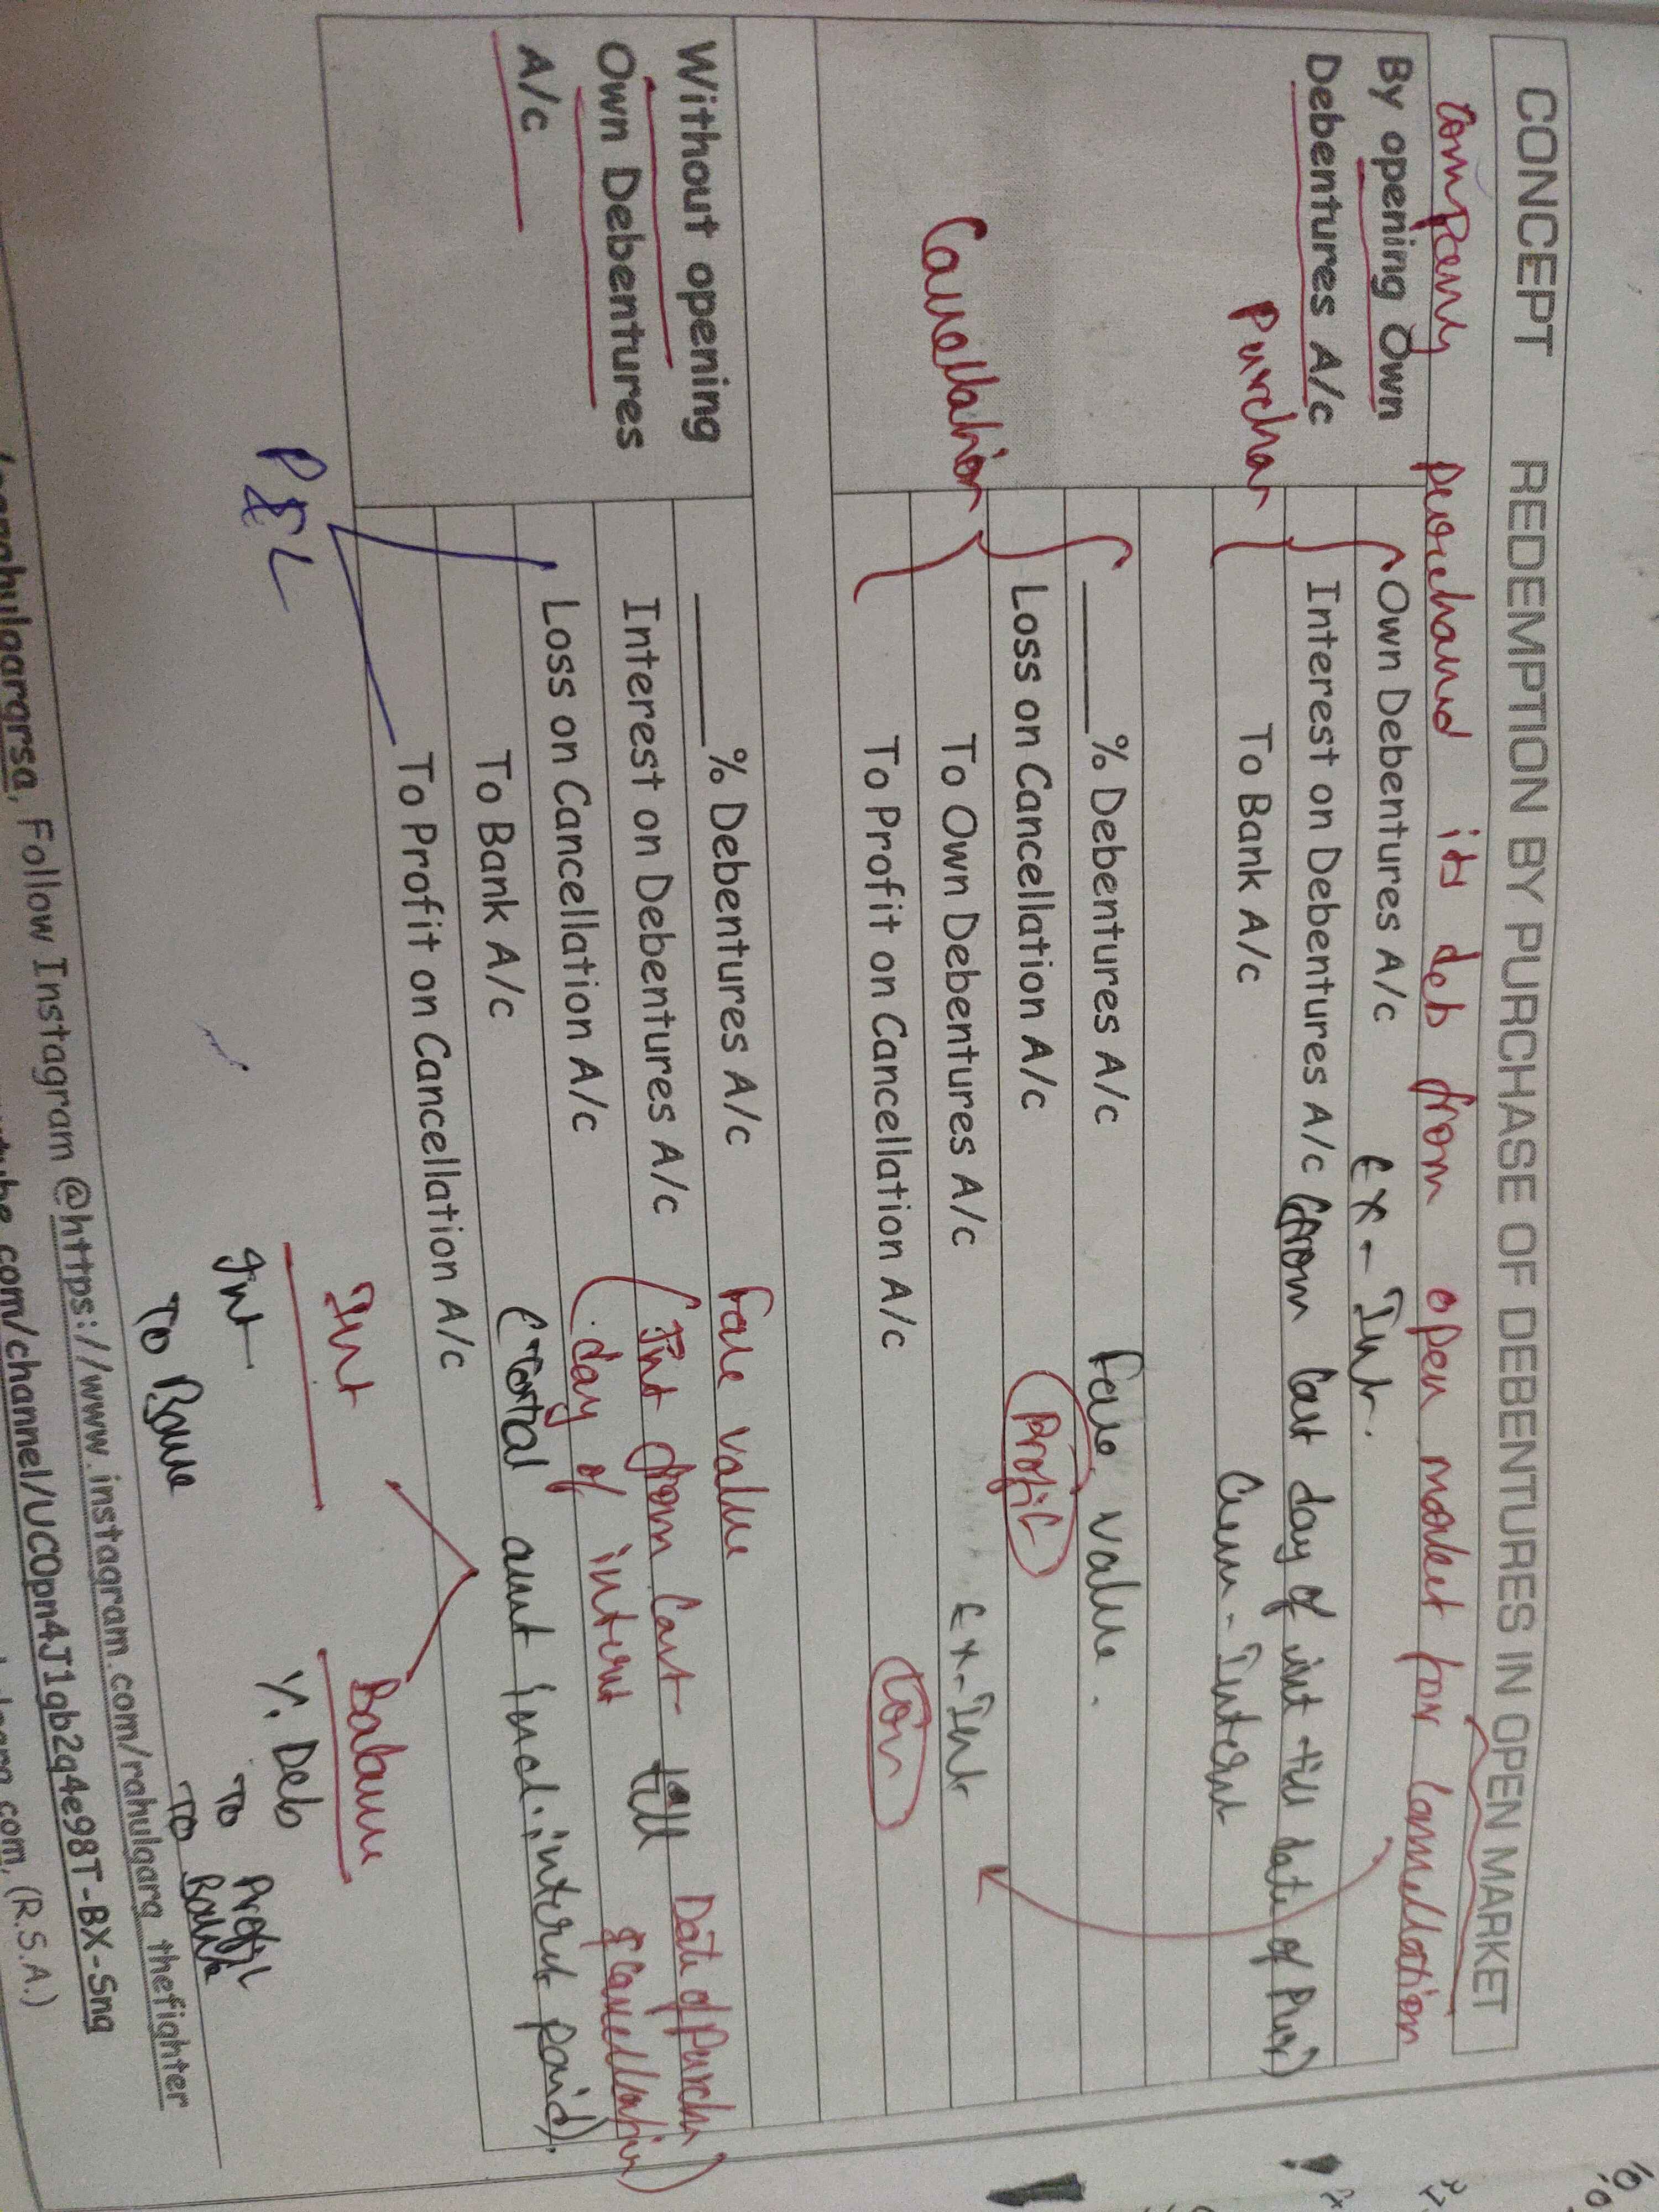 CONCEPT REDEMPTION BY PURCHASE OF DEBENTURES IN OPEN MARKET
Company purchased its deb from open market for cancellation
By opening Own
Debentures A/c
Purchas
Own Debentures A/c Ex-Int.
Interest on Debentures A/c (from last day of int till date of Pur)
To Bank A/c Cum-Interest
Cancellation
______% Debentures A/c Face value.
Loss on Cancellation A/c Profit
To Own Debentures A/c Ex-Int
To Profit on Cancellation A/c Loss
Without opening
Own Debentures
A/c
______% Debentures A/c Face value
Interest on Debentures A/c (Int from last till Date of Purch
day of interest & cancellation)
Loss on Cancellation A/c
To Bank A/c (Total amt incl. interest paid).
To Profit on Cancellation A/c
P&L
Int Balance
Int % Deb
To Bank To Profit
To Bank
rahulgargrsa, Follow Instagram @https://www.instagram.com/rahulgarg_thefighter
utube.com/channel/UCOpn4J1gb2q4e98T-BX-Sng
.com, (R.S.A.)